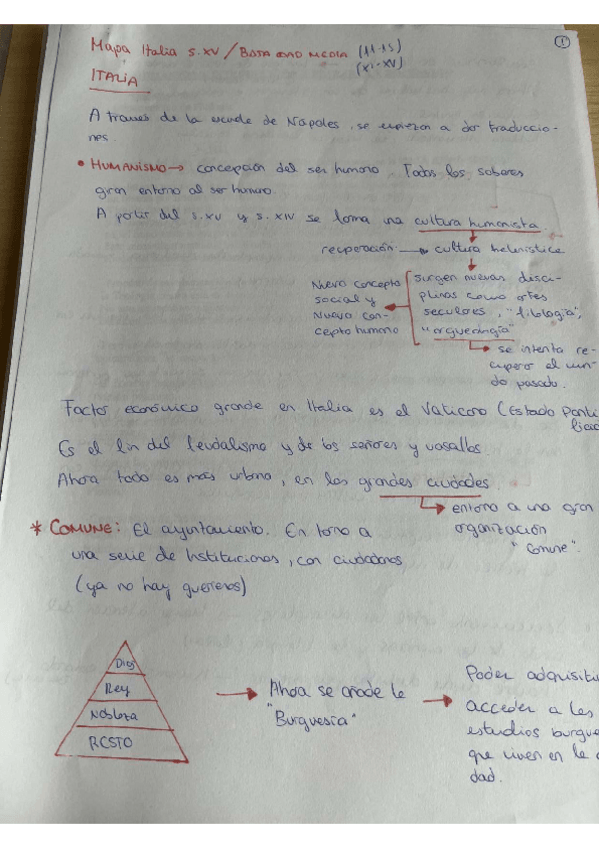 1
Mapa Italia s.xv / BAJA EDAD MEDIA (11-15)
(XI-XV)
ITALIA
A traves de la escuela de Nápoles, se empiezan a dar traduccio-
nes.
• HUMANISMO → concepción del ser humano. Todos los saberes
giran entorno al ser humano.
A partir del s.XV y s.XIV se forma una cultura humanista.
recuperación → cultura helenística
surgen nuevas disci-
plinas como artes
seculares, "filología",
"arqueología"
Nuevo concepto
social y
Nuevo con-
cepto humano
se intenta re-
cuperar el mun-
do pasado.
Factor económico grande en Italia es el Vaticano (Estado Ponti
ficio
Es el fin del feudalismo y de los señores y vasallos.
Ahora todo es más urbano, en las grandes ciudades.
entorno a una gran
organización
"Comune".
* COMUNE: El ayuntamiento. En torno a
una serie de Instituciones, con ciudadanos
(ya no hay guerreros)
Dios
Rey
Nobleza
RESTO
→ Ahora se añade la
"Burguesía"
→ Poder adquisiti
acceder a los
estudios burgue
que viven en la
dad.